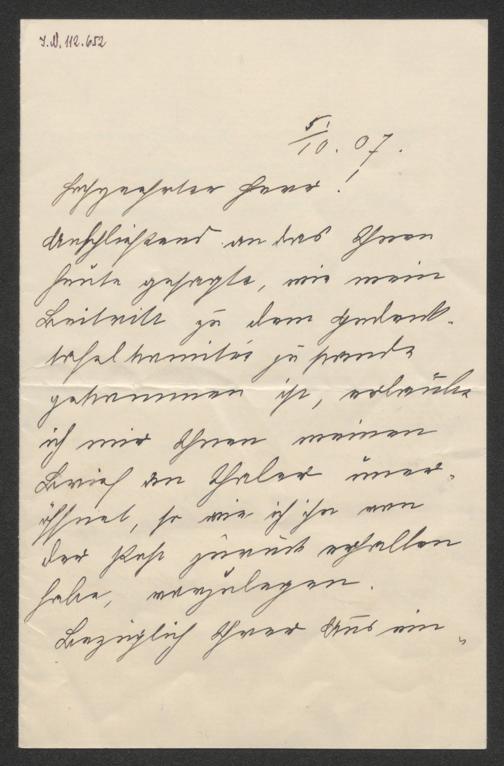 I.N. 112.652
5/10. 07.
Hochgeehrter Herr!
Anschließend an das Ihnen
heute gesagte, wie mein
Beitritt zu dem Gedenk-
tafelkomitée zu stande
gekommen ist, erlaube
ich mir Ihnen meinen
Brief an Thaler uner-
öffnet, so wie ich ihn von
der Post zurück erhalten
habe, vorzulegen.
Bezüglich Ihrer Aus ein